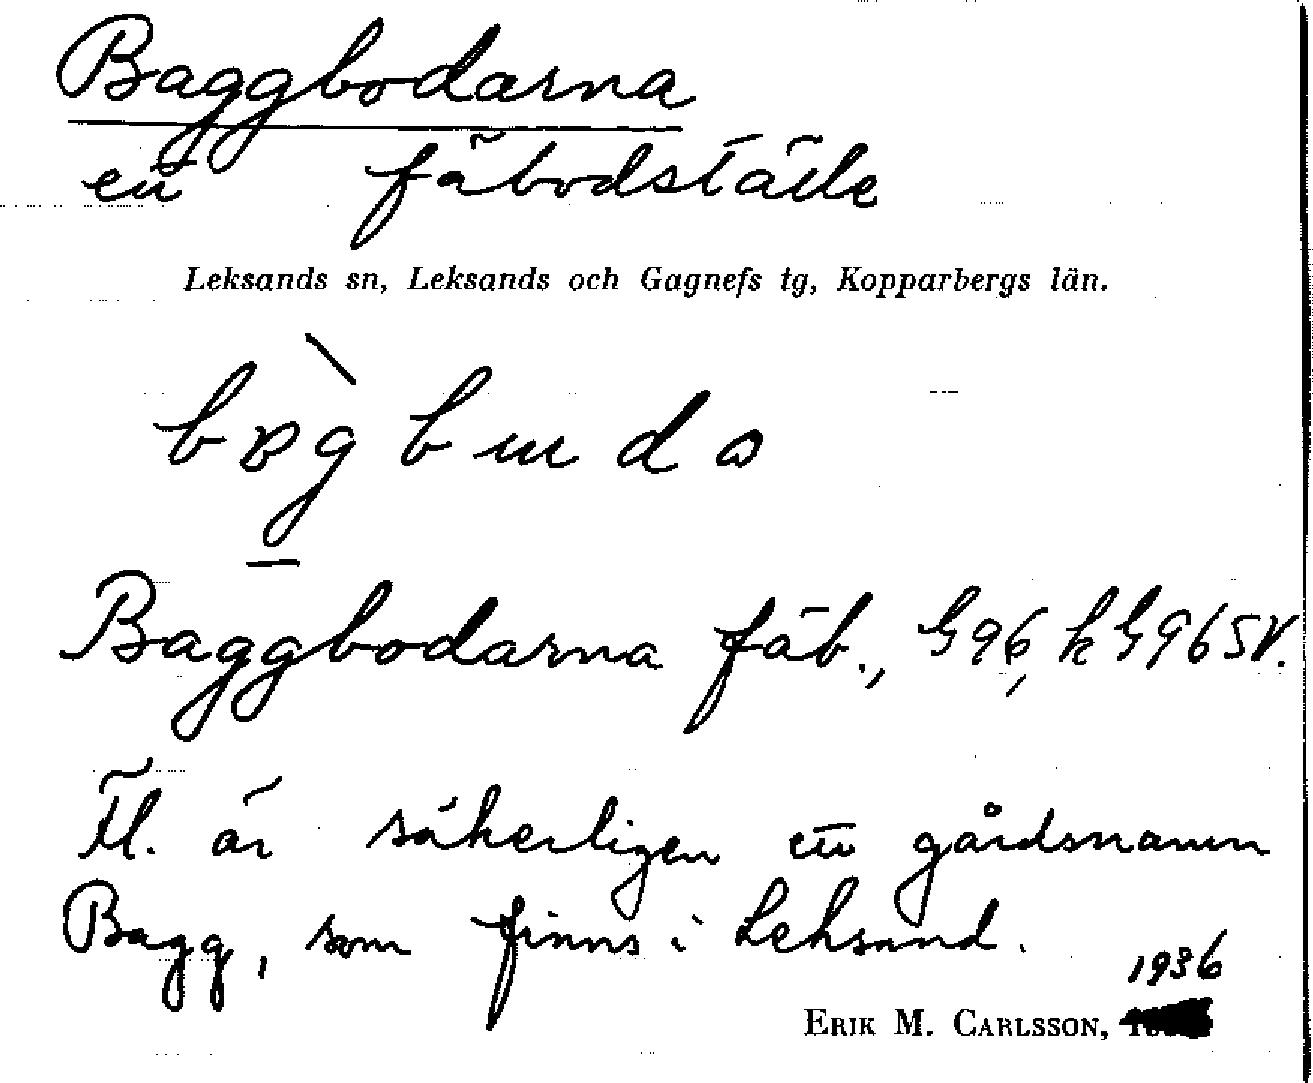 Baggbodarna
ett fäbodställe
Leksands sn, Leksands och Gagnefs tg, Kopparbergs län.
Baggbodarna fäb., G96, k G96 SV.
Fl. är säkerligen ett gårdsnamn
Bagg, som finns i Leksand.
1936
ERIK M. CARLSSON,